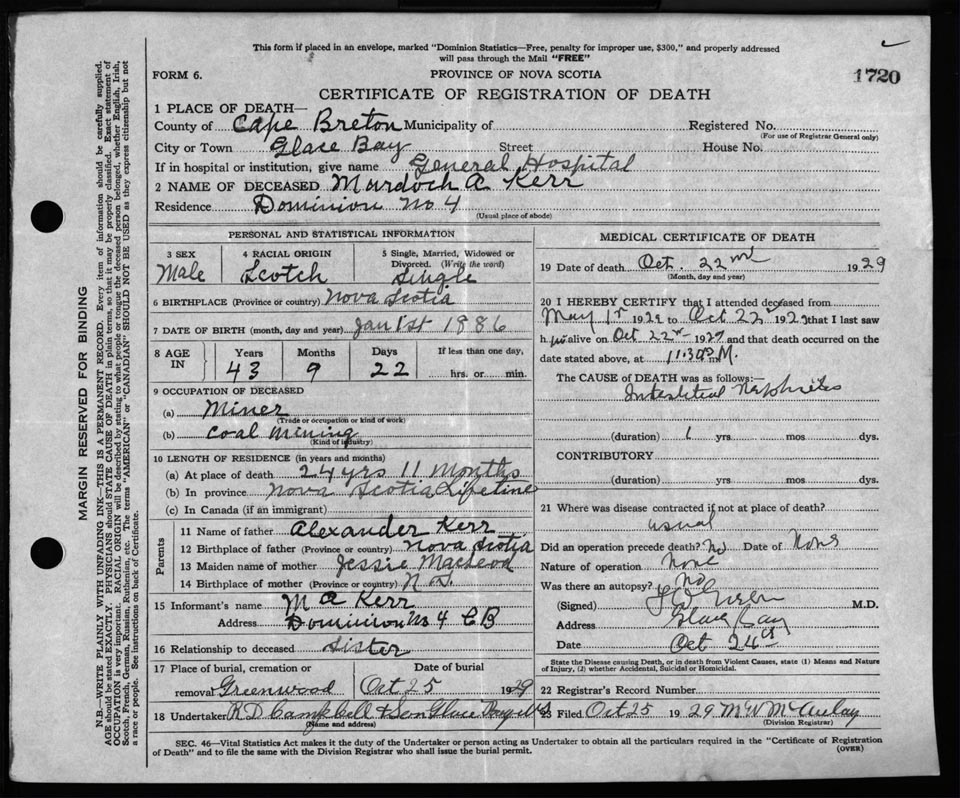 This form if placed in an envelope, marked "Dominion Statistics—Free, penalty for improper use, $300," and properly addressed
will pass through the Mail "FREE"
FORM 6.
PROVINCE OF NOVA SCOTIA
1720
CERTIFICATE OF REGISTRATION OF DEATH
1 PLACE OF DEATH—
County of Cape Breton Municipality of Registered No.
(For use of Registrar General only)
City or Town Glace Bay Street House No.
If in hospital or institution, give name General Hospital
2 NAME OF DECEASED Murdoch A Kerr
Residence Dominion No 4
(Usual place of abode)
PERSONAL AND STATISTICAL INFORMATION
3 SEX 4 RACIAL ORIGIN 5 Single, Married, Widowed or
Divorced. (Write the word)
Male Scotch Single
6 BIRTHPLACE (Province or country) Nova Scotia
7 DATE OF BIRTH (month, day and year) Jan 1st 1886
8 AGE IN Years Months Days If less than one day,
43 9 22 hrs. or min.
9 OCCUPATION OF DECEASED
(a) Miner
(Trade or occupation or kind of work)
(b) Coal Mining
(Kind of industry)
10 LENGTH OF RESIDENCE (in years and months)
(a) At place of death 24 yrs 11 Months
(b) In province Nova Scotia Lifetime
(c) In Canada (if an immigrant)
Parents
11 Name of father Alexander Kerr
12 Birthplace of father (Province or country) Nova Scotia
13 Maiden name of mother Jessie MacLeod
14 Birthplace of mother (Province or country) N S.
15 Informant's name M A Kerr
Address Dominion No 4 C B
16 Relationship to deceased Sister
17 Place of burial, cremation or Date of burial
removal Greenwood Oct 25 1929
18 Undertaker R D Campbell + Son Glace Bay N S
(Name and address)
MEDICAL CERTIFICATE OF DEATH
19 Date of death Oct. 22nd 1929
(Month, day and year)
20 I HEREBY CERTIFY that I attended deceased from
May 1st 1929 to Oct 22nd 1929 that I last saw
h im alive on Oct 22nd 1929 and that death occurred on the
date stated above, at 11.30 P.M.
The CAUSE of DEATH was as follows:—
Interstitial Nephritis
(duration) 1 yrs mos dys.
CONTRIBUTORY
(duration) yrs mos dys.
21 Where was disease contracted if not at place of death?
usual
Did an operation precede death? No Date of None
Nature of operation None
Was there an autopsy? No
(Signed) M.D.
Address Glace Bay
Date Oct 24th
State the Disease causing Death, or in death from Violent Causes, state (1) Means and Nature
of Injury, (2) whether Accidental, Suicidal or Homicidal.
22 Registrar's Record Number
23 Filed Oct 25 1929 M W McAulay
(Division Registrar)
SEC. 46—Vital Statistics Act makes it the duty of the Undertaker or person acting as Undertaker to obtain all the particulars required in the "Certificate of Registration
of Death" and to file the same with the Division Registrar who shall issue the burial permit.
(OVER)
MARGIN RESERVED FOR BINDING
N.B.—WRITE PLAINLY WITH UNFADING INK—THIS IS A PERMANENT RECORD. Every item of information should be carefully supplied.
AGE should be stated EXACTLY. PHYSICIANS should STATE CAUSE OF DEATH in plain terms, so that it may be properly classified. Exact statement of
OCCUPATION is very important. RACIAL ORIGIN will be described by stating to what people or tongue the deceased person belonged, whether English, Irish,
Scotch, French, German, Russian, Ruthenian, etc. The terms "AMERICAN" or "CANADIAN" SHOULD NOT BE USED as they express citizenship but not
a race or people. See instructions on back of Certificate.